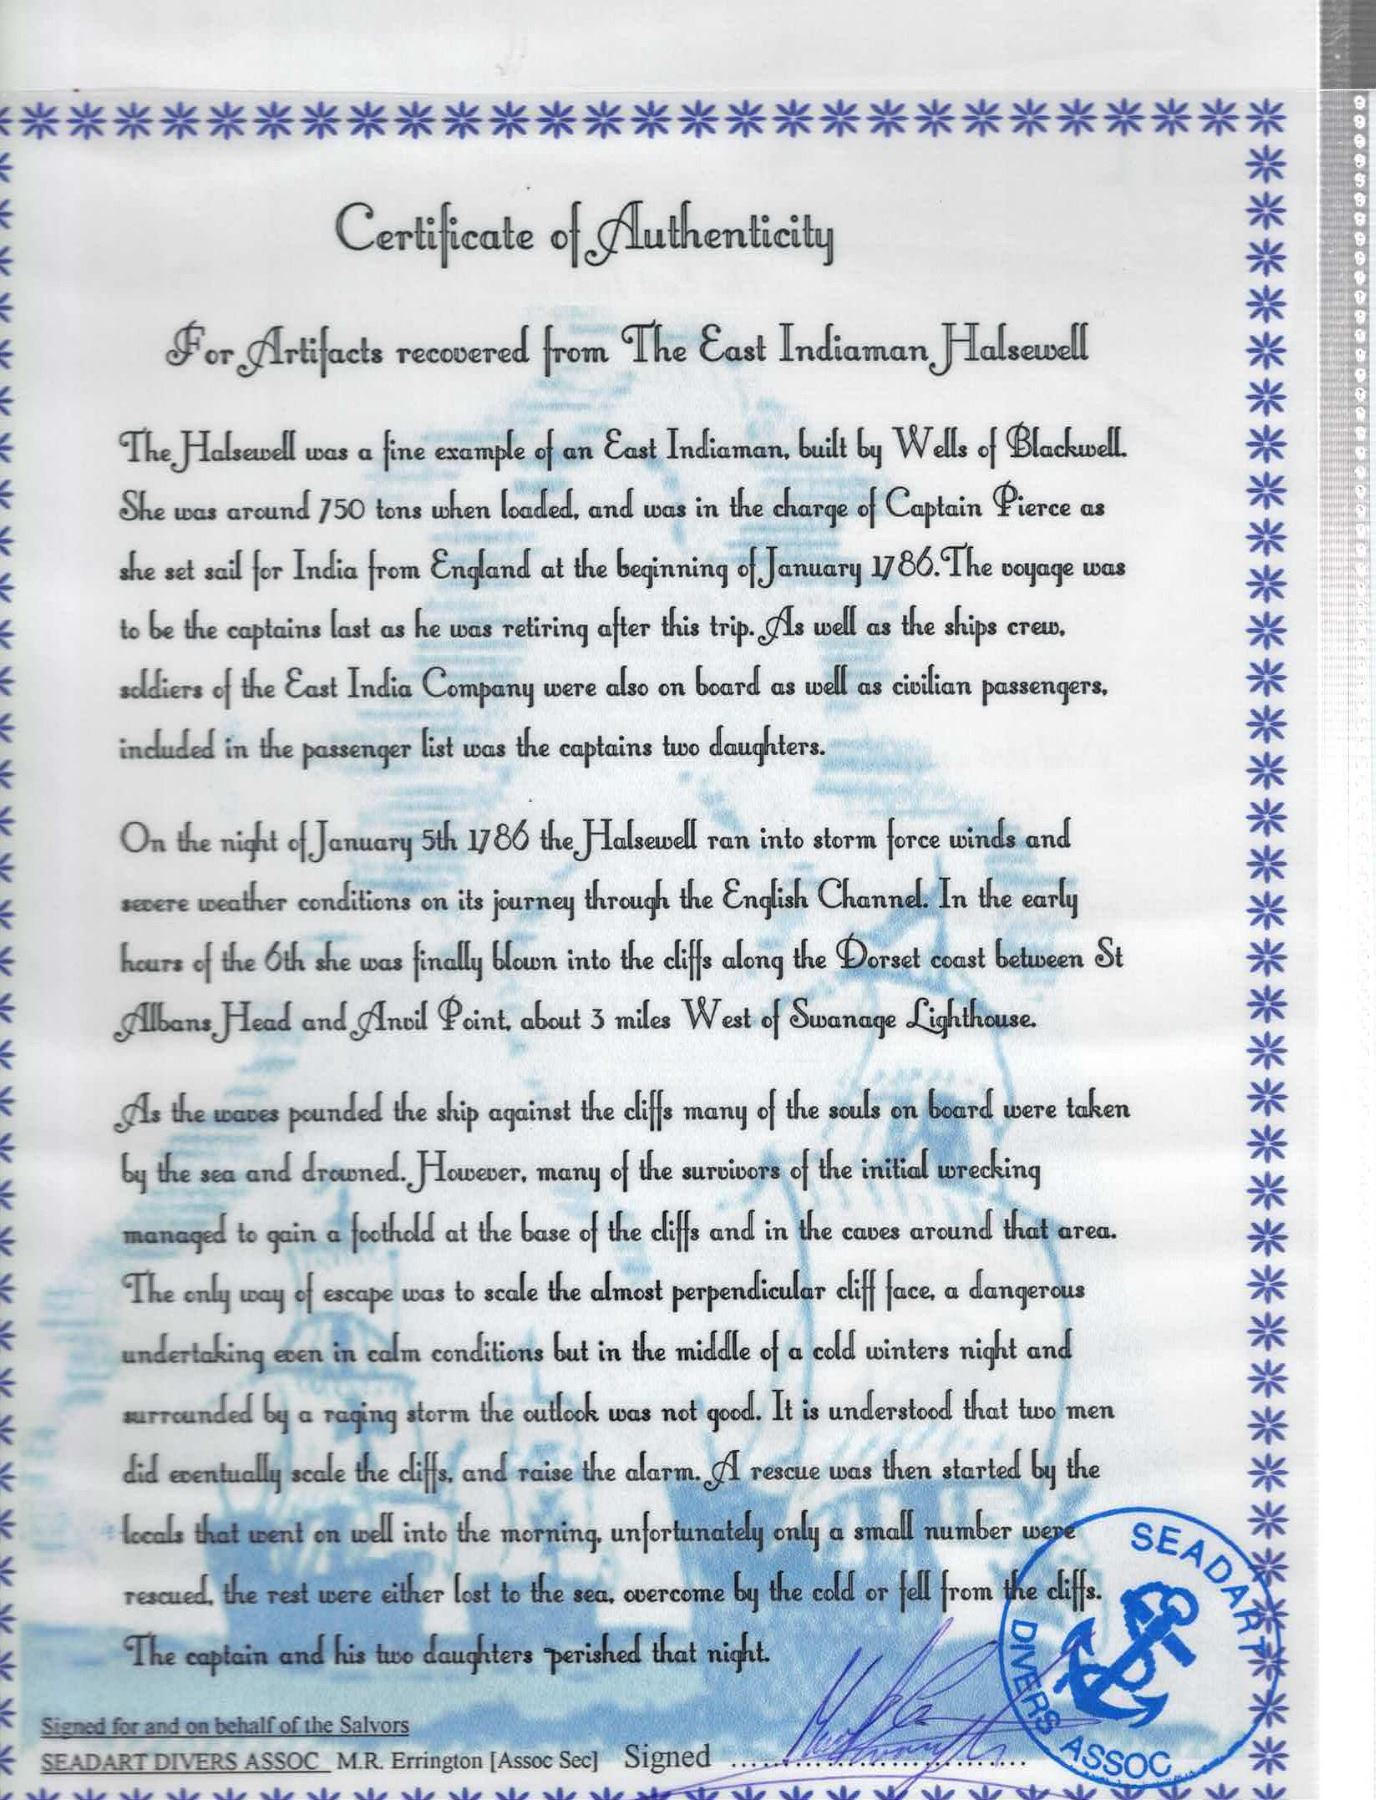 Certificate of Authenticity
For Artifacts recovered from The East Indiaman Halsewell
The Halsewell was a fine example of an East Indiaman, built by Wells of Blackwell.
She was around 750 tons when loaded, and was in the charge of Captain Pierce as
she set sail for India from England at the beginning of January 1786. The voyage was
to be the captains last as he was retiring after this trip. As well as the ships crew,
soldiers of the East India Company were also on board as well as civilian passengers,
included in the passenger list was the captains two daughters.
On the night of January 5th 1786 the Halsewell ran into storm force winds and
severe weather conditions on its journey through the English Channel. In the early
hours of the 6th she was finally blown into the cliffs along the Dorset coast between St
Albans Head and Anvil Point, about 3 miles West of Swanage Lighthouse.
As the waves pounded the ship against the cliffs many of the souls on board were taken
by the sea and drowned. However, many of the survivors of the initial wrecking
managed to gain a foothold at the base of the cliffs and in the caves around that area.
The only way of escape was to scale the almost perpendicular cliff face, a dangerous
undertaking even in calm conditions but in the middle of a cold winters night and
surrounded by a raging storm the outlook was not good. It is understood that two men
did eventually scale the cliffs, and raise the alarm. A rescue was then started by the
locals that went on well into the morning, unfortunately only a small number were
rescued, the rest were either lost to the sea, overcome by the cold or fell from the cliffs.
The captain and his two daughters perished that night.
Signed for and on behalf of the Salvors
SEADART DIVERS ASSOC M.R. Errington [Assoc Sec] Signed
SEADART DIVERS ASSOC